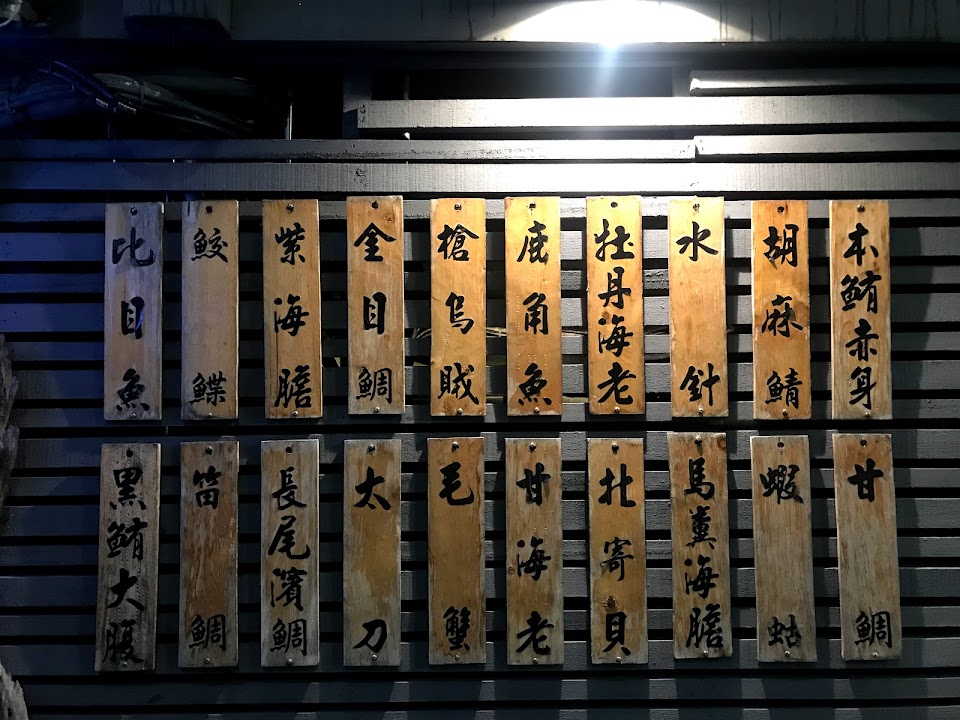 本鮪赤身
胡麻鯖
水針
牡丹海老
鹿角魚
槍烏賊
金目鯛
紫海膽
鮫鰈
比目魚
甘鯛
蝦蛄
馬糞海膽
北寄貝
甘海老
毛蟹
太刀
長尾濱鯛
笛鯛
黑鮪大腹